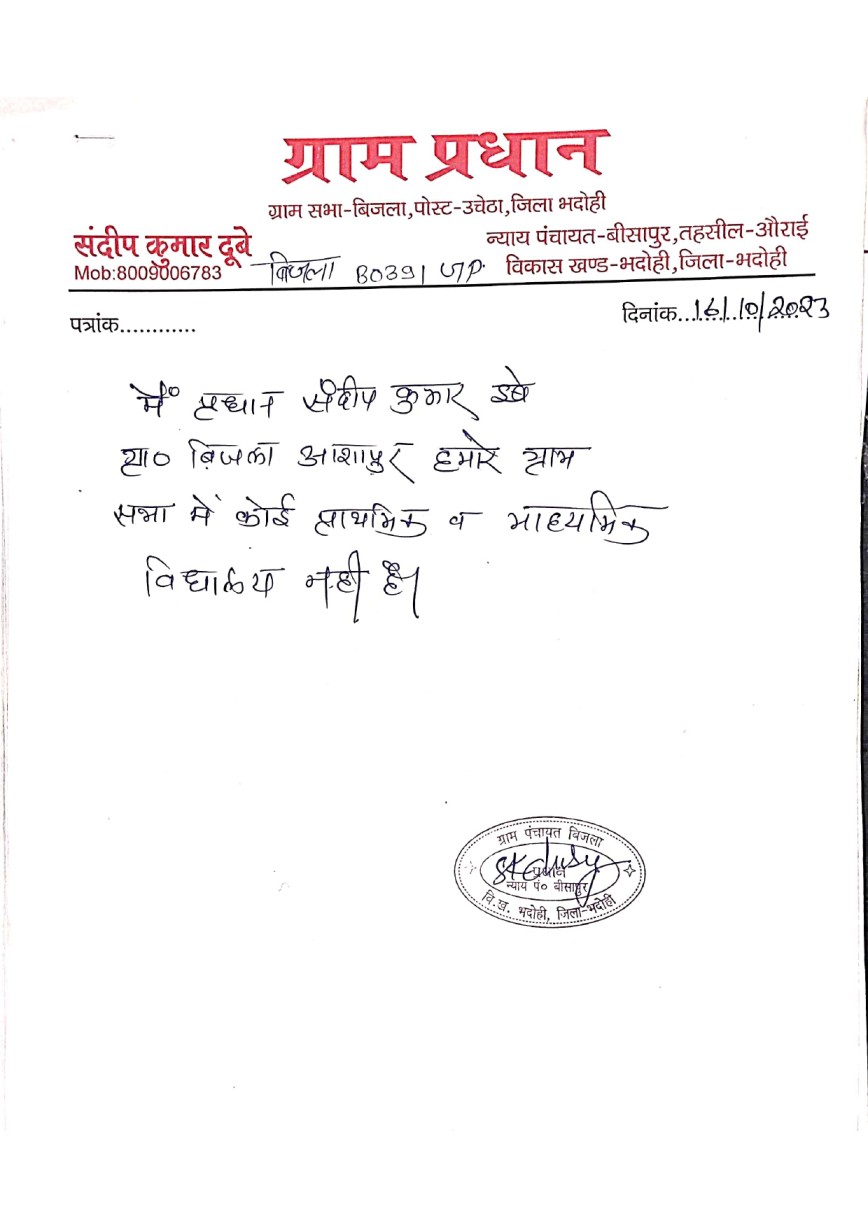 ग्राम प्रधान
ग्राम सभा-बिजला,पोस्ट-उचेठा,जिला भदोही
संदीप कुमार दूबे
Mob:8009006783
न्याय पंचायत-बीसापुर,तहसील-औराई
विकास खण्ड-भदोही,जिला-भदोही
बिजला B0391 UP.
पत्रांक............
दिनांक...16/10/2023
मैं० प्रधान संदीप कुमार दुबे
ग्रा० बिजला आशापुर हमारे ग्राम
सभा में कोई प्राथमिक व माध्यमिक
विद्यालय नही है।
ग्राम पंचायत बिजला
SKdubey
प्रधान
न्याय पं० बीसापुर
वि.ख. भदोही, जिला-भदोही